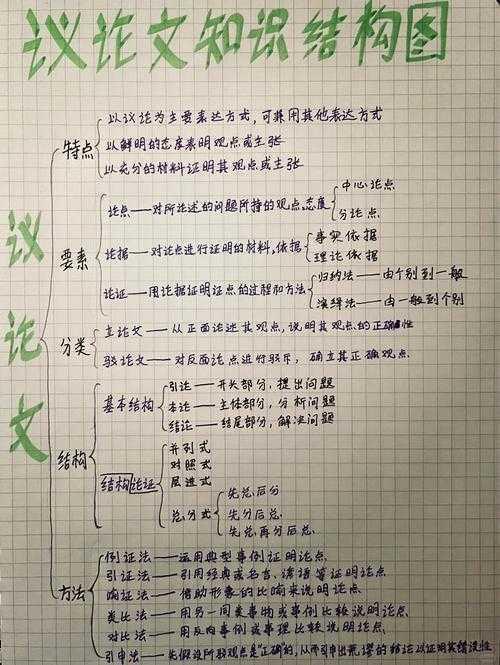 议论文知识结构图
议论文
特点
以议论为主要表达方式，可兼用其他表达方式
以鲜明的态度表明观点或主张
以充分的材料证明其观点或主张
要素
论点——对所论述的问题所持的观点态度
中心论点
分论点
论据——对论点进行证明的材料，依据
事实依据
理论依据
论证——用论据证明论点的过程和方法
归纳法——由个别到一般
演绎法——由一般到个别
分类
立论文——从正面论述其观点，说明其观点的正确性
驳论文——对反面论点进行驳斥，确立其正确观点
结构
基本结构
引论——开头部分，提出问题
本论——主体部分，分析问题
结论——结尾部分，解决问题
结构论证
并列式
对照式
层进式
总分式
先总后分
先分后总
先总再分后总
方法
例证法——运用典型事例证明论点
引证法——引用经典或名言、谚语等证明论点
喻证法——借助形象的比喻来说明论点
类比法——用另一同类事物或事例比较说明论点
对比法——用反面事例或事理比较说明论点
引申法——先假设所驳观点是“正确”的，从而引申出荒谬的结论以证明其错误性